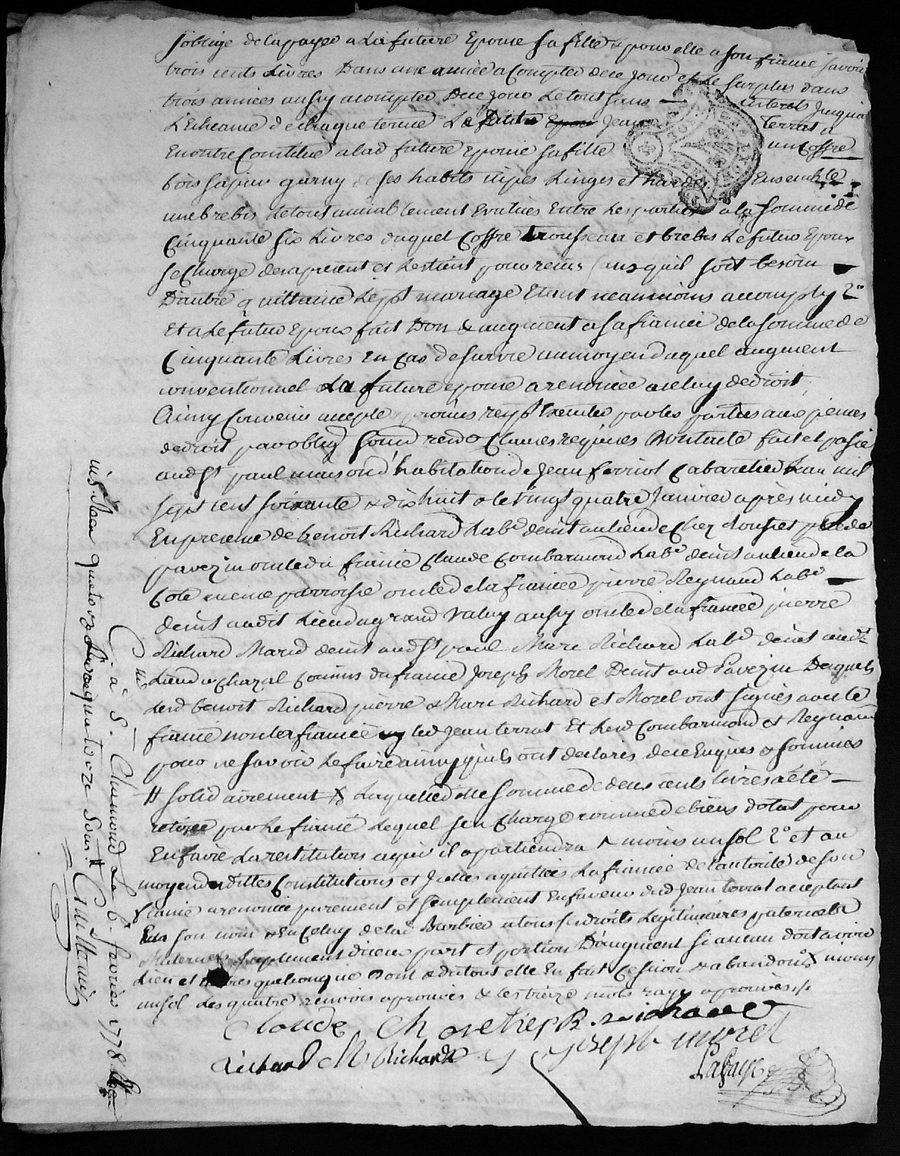 s'oblige de la payer a La future Epouse sa fille & pour elle a son fiancé savoir
trois cents Livres Dans une année a Compter de ce Jour et Le surplus dans
trois années aussy a compter De ce Jour Le tout sans interets Jusqua
L'Echeance De chaque terme Led Jean terrat a
En outre Constitué a lad future Epouse sa fille un Coffre
bois sapin garny de ses habits nipes Linges et hardes Ensemble
une brebis Le tout amiablement Evalués Entre Les parties a la somme de
Cinquante six Livres duquel Coffre trousseau et brebis Le futur Epoux
se Charge des apresent et Les tient pour reçus sans qu'il soit besoin
D'autre quittance Le pnt mariage Etant neanmoins accomply 2°
Et a Le futur Epoux fait Don & augment a sa fiancée de la somme de
Cinquante Livres En Cas de survie au moyen duquel augment
conventionnel La future epouse a renoncée a celuy de droit,
Ainsy Convenu accepté promis par les parties aux peines
de droit par oblig soum renon Clauses requises Dont acte fait et passé
aud St paul maison d'habitation de Jean ferriol Cabaretier L'an mil
sept cent soixante & dix huit & le vingt quatre Janvier après midy
En presence de benoit Richard Lab demt au lieu de
pavezin oncle du fiancé Claude Combarmond Lab demt au lieu de la
Cote meme parroisse oncle de la fiancée pierre Reynaud Lab
demt audit Lieu du grand Valuy aussy oncle de la fiancée pierre
Richard Marid demt aud St paul Marc Richard Lab demt aud
Lieu de Chazal Cousins du fiancé Joseph Morel Demt aud Pavezin Desquels
Led benoit Richard pierre & Marc Richard et Morel ont signés avec le
fiancé non les fiancée ny led Jean terrat Et Led Combarmond et Reynaud
pour ne savoir Le faire ainsy qu'ils ont declarés de ce Enquis & sommés
# solidairement & Laquelle dte somme de deux cents Livres a eté
retirée par Le fiancé Lequel s'en Charge comme de biens dotal pour
En faire La restitution a qui il apartiendra & moins un sol 2° et au
moyen desdittes Constitutions et d'icelles aquittées La fiancée de l'autorité de son
fiancé a renoncée purement et simplement En faveur dud Jean terrat acceptant
En son nom & En Celuy de de la Barbier a tous ses droits Legitimaires paternels &
Maternels suplement d'iceux part et portion D'augment si aucun doit avoir
Lieu et autres quelconque Dont & du tout elle En fait Cession & abandon & moins
un sol Les quatre renvois aprouvés & les treize mots rayés aprouvés /.
Claude Chovetier B. richard
Richard M Richard Joseph morel
Lafayе
C. à S. Chamond Le 6 fevrier 1778
Reçu quatorze Livres quatorze sous #
Guillemin